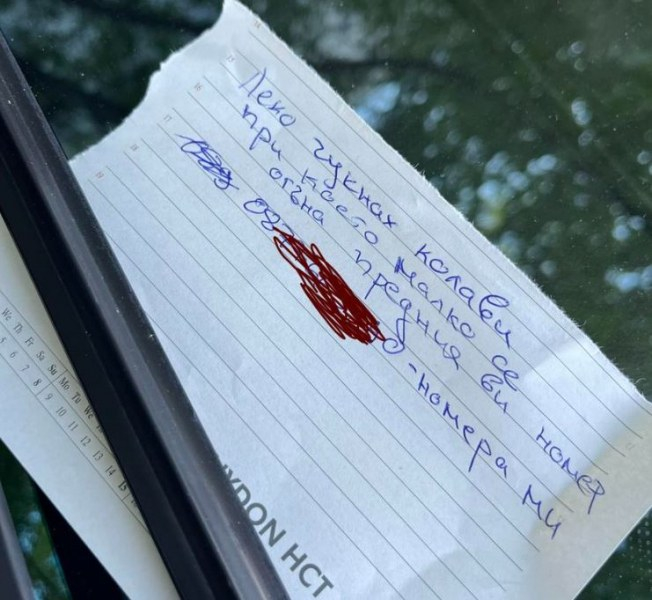 Леко чукнах колави
при което малко се
огъна предния ви номер
08
-номера ми
YDON HCT
We Th Fr Sa Su Mo Tu We
5 6 7 8 9 10 11 12 13 14 15